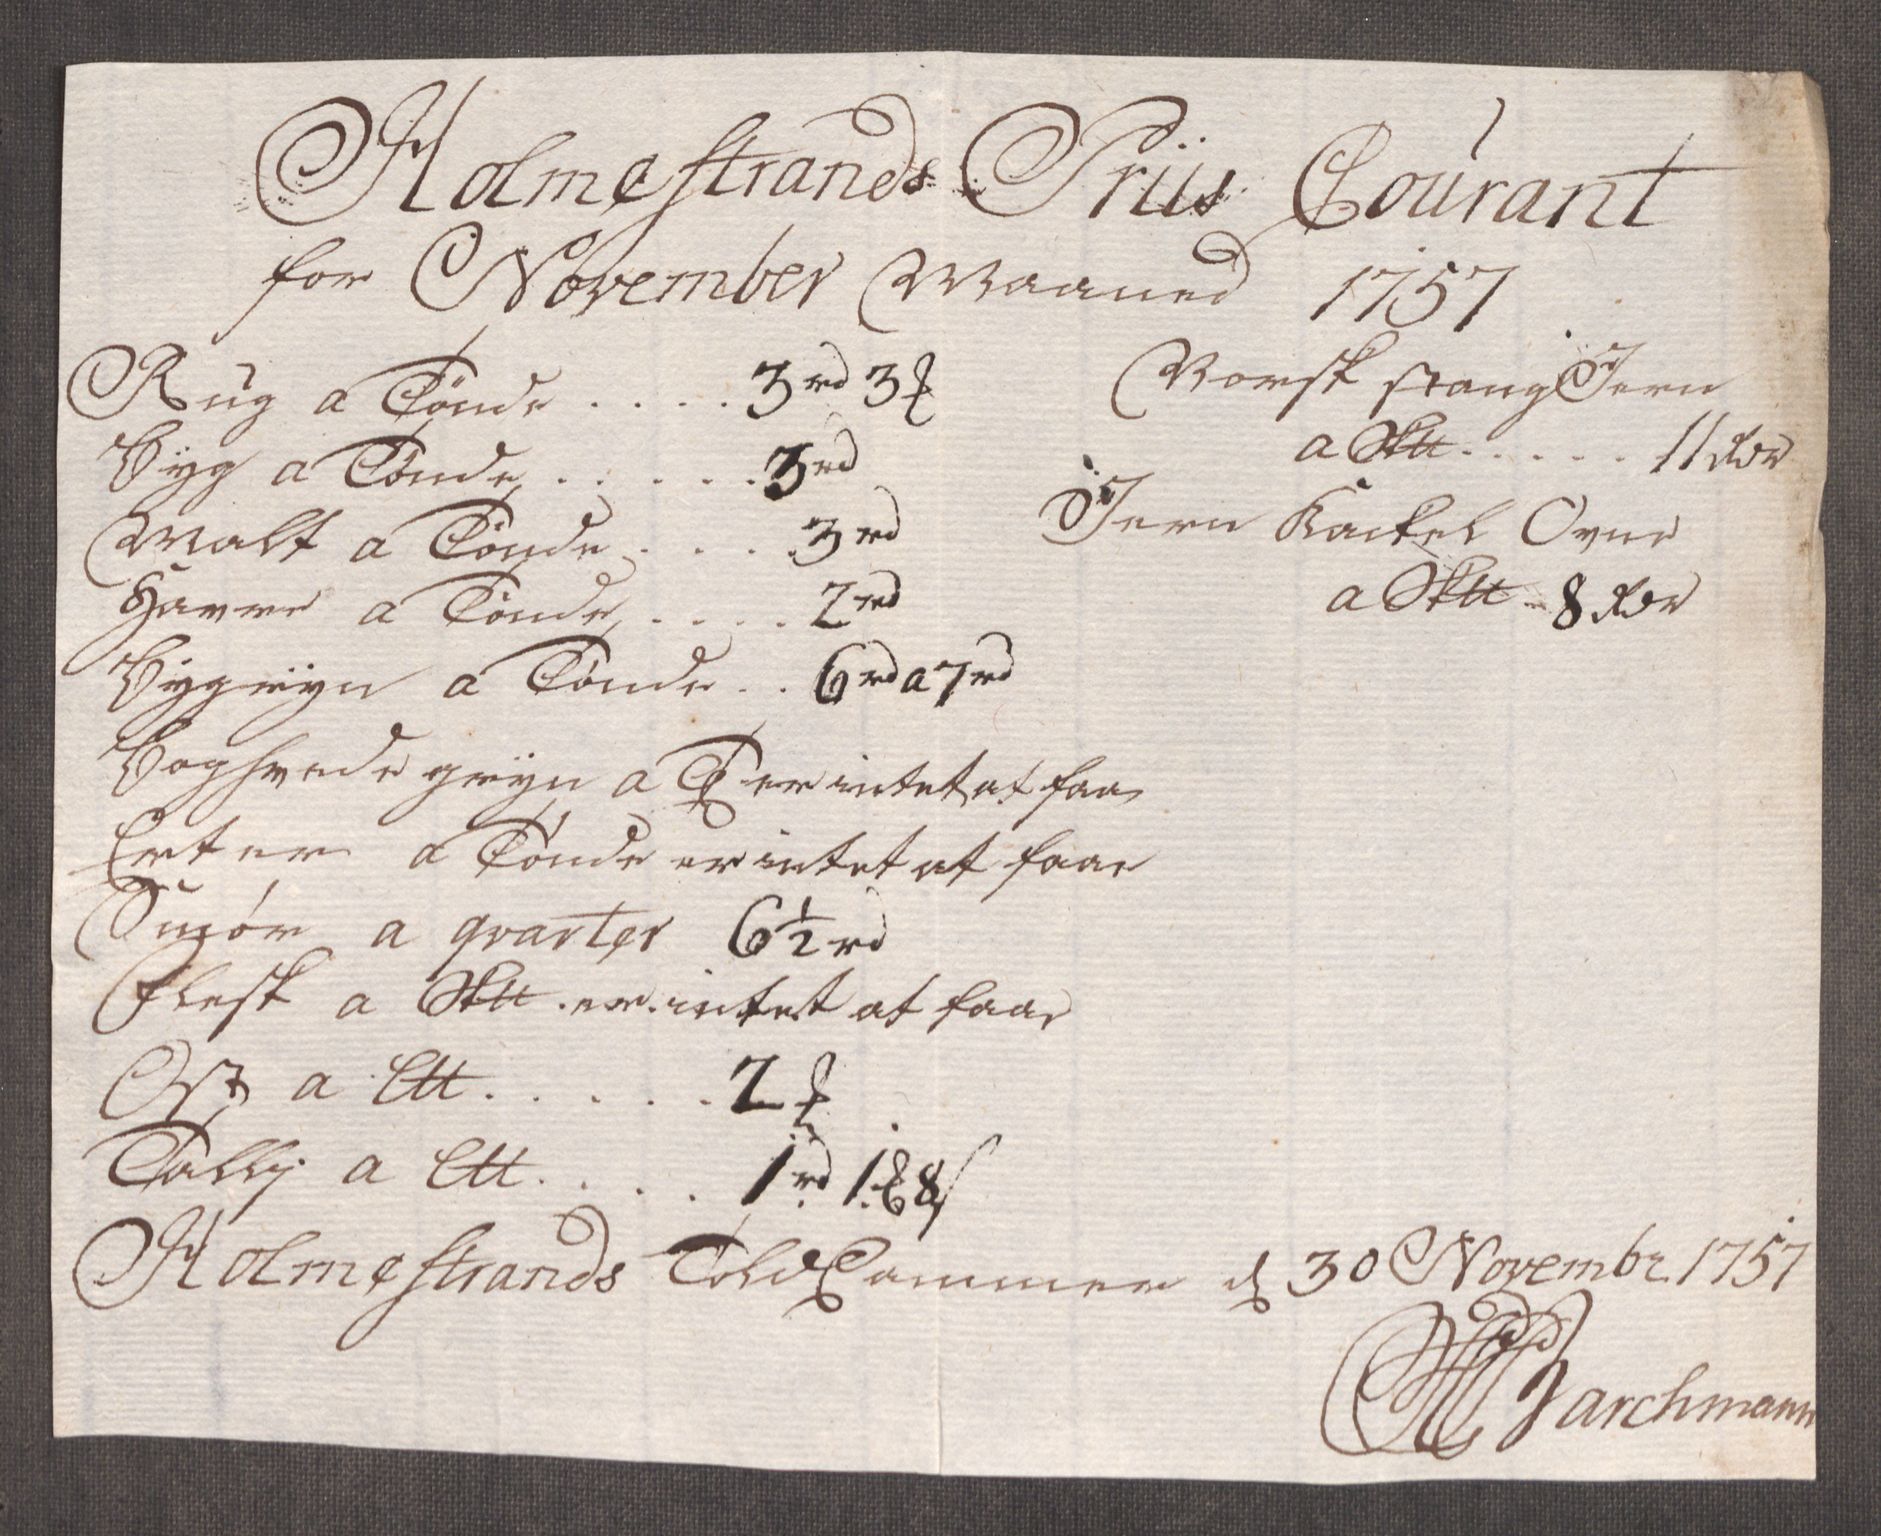 Holmestrands Priis Courant
for November Maaned 1757
Rug a Tønde . . . . 3rd 3 ꝑ
Byg a Tønde . . . . . 3rd
Malt a Tønde . . . . 3rd
Havre a Tønde . . . . 2rd
Byggryn a Tønde . . 6rd a 7rd
Boghvede gryn a T er intet at faa
Erter a Tønde er intet at faae
Smør a qvarter 6½ rd
Flesk a S℔ . er intet at faae
Ost a L℔ . . . . . 2
Tallig a L℔ . . . . 1rd 1 8
Norsk stang Jern
a S℔ . . . . . 11 Rdr
Jern Kackel Ovne
a S℔ . 8 Rdr
Holmestrands Told Cammer d 30 Novembr. 1757
Parchmann